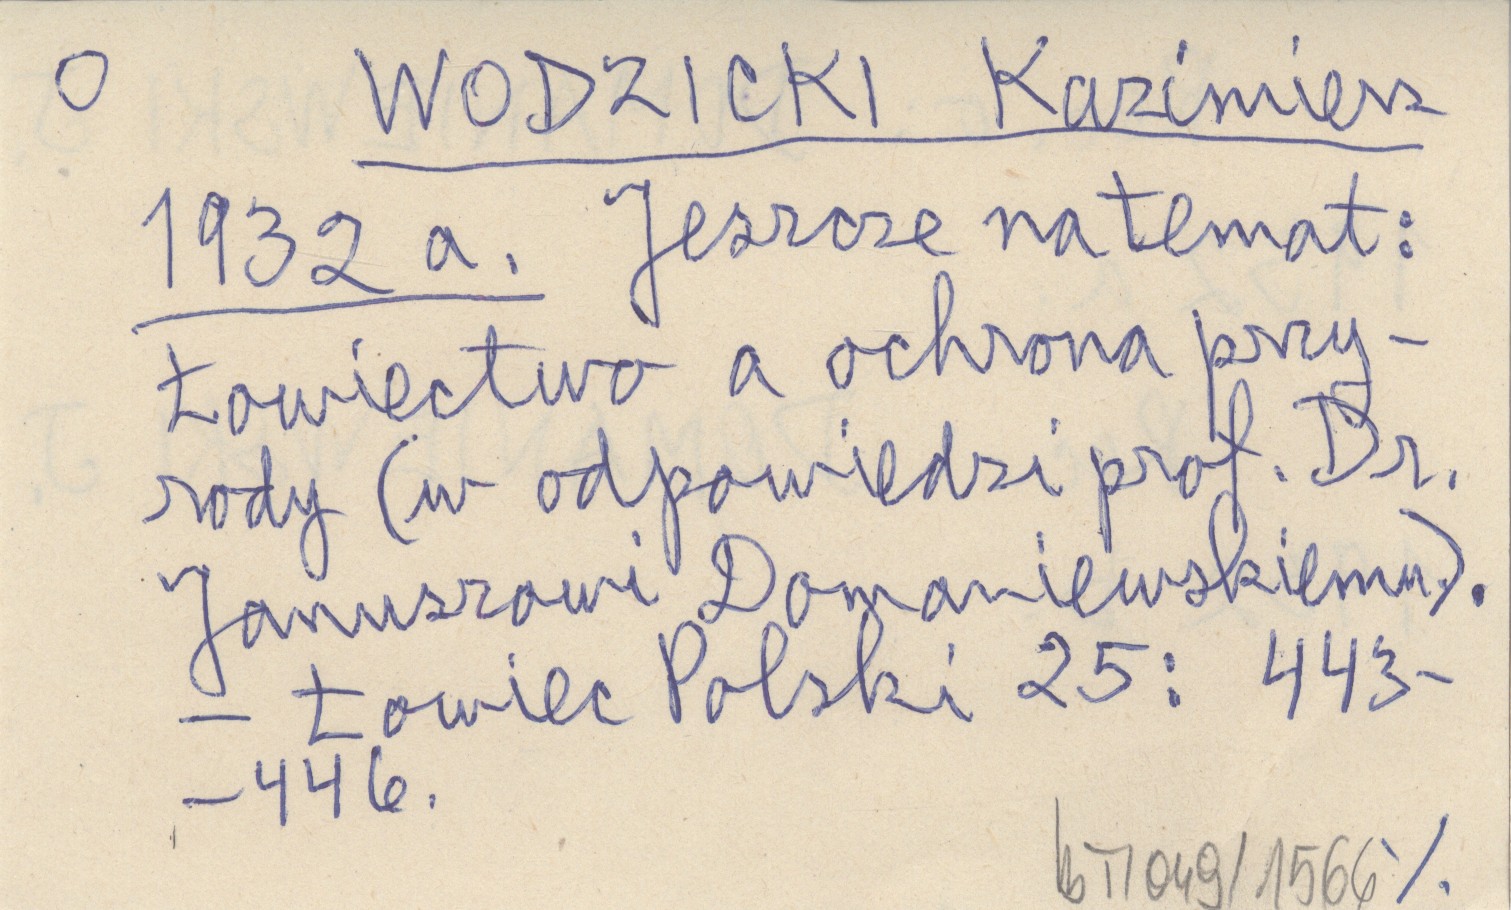 O WODZICKI Kazimierz
1932 a. Jeszcze na temat:
Łowiectwo a ochrona przy-
rody (w odpowiedzi prof. Dr.
Januszowi Domaniewskiemu).
— Łowiec Polski 25: 443-
-446.
049/1566 /.